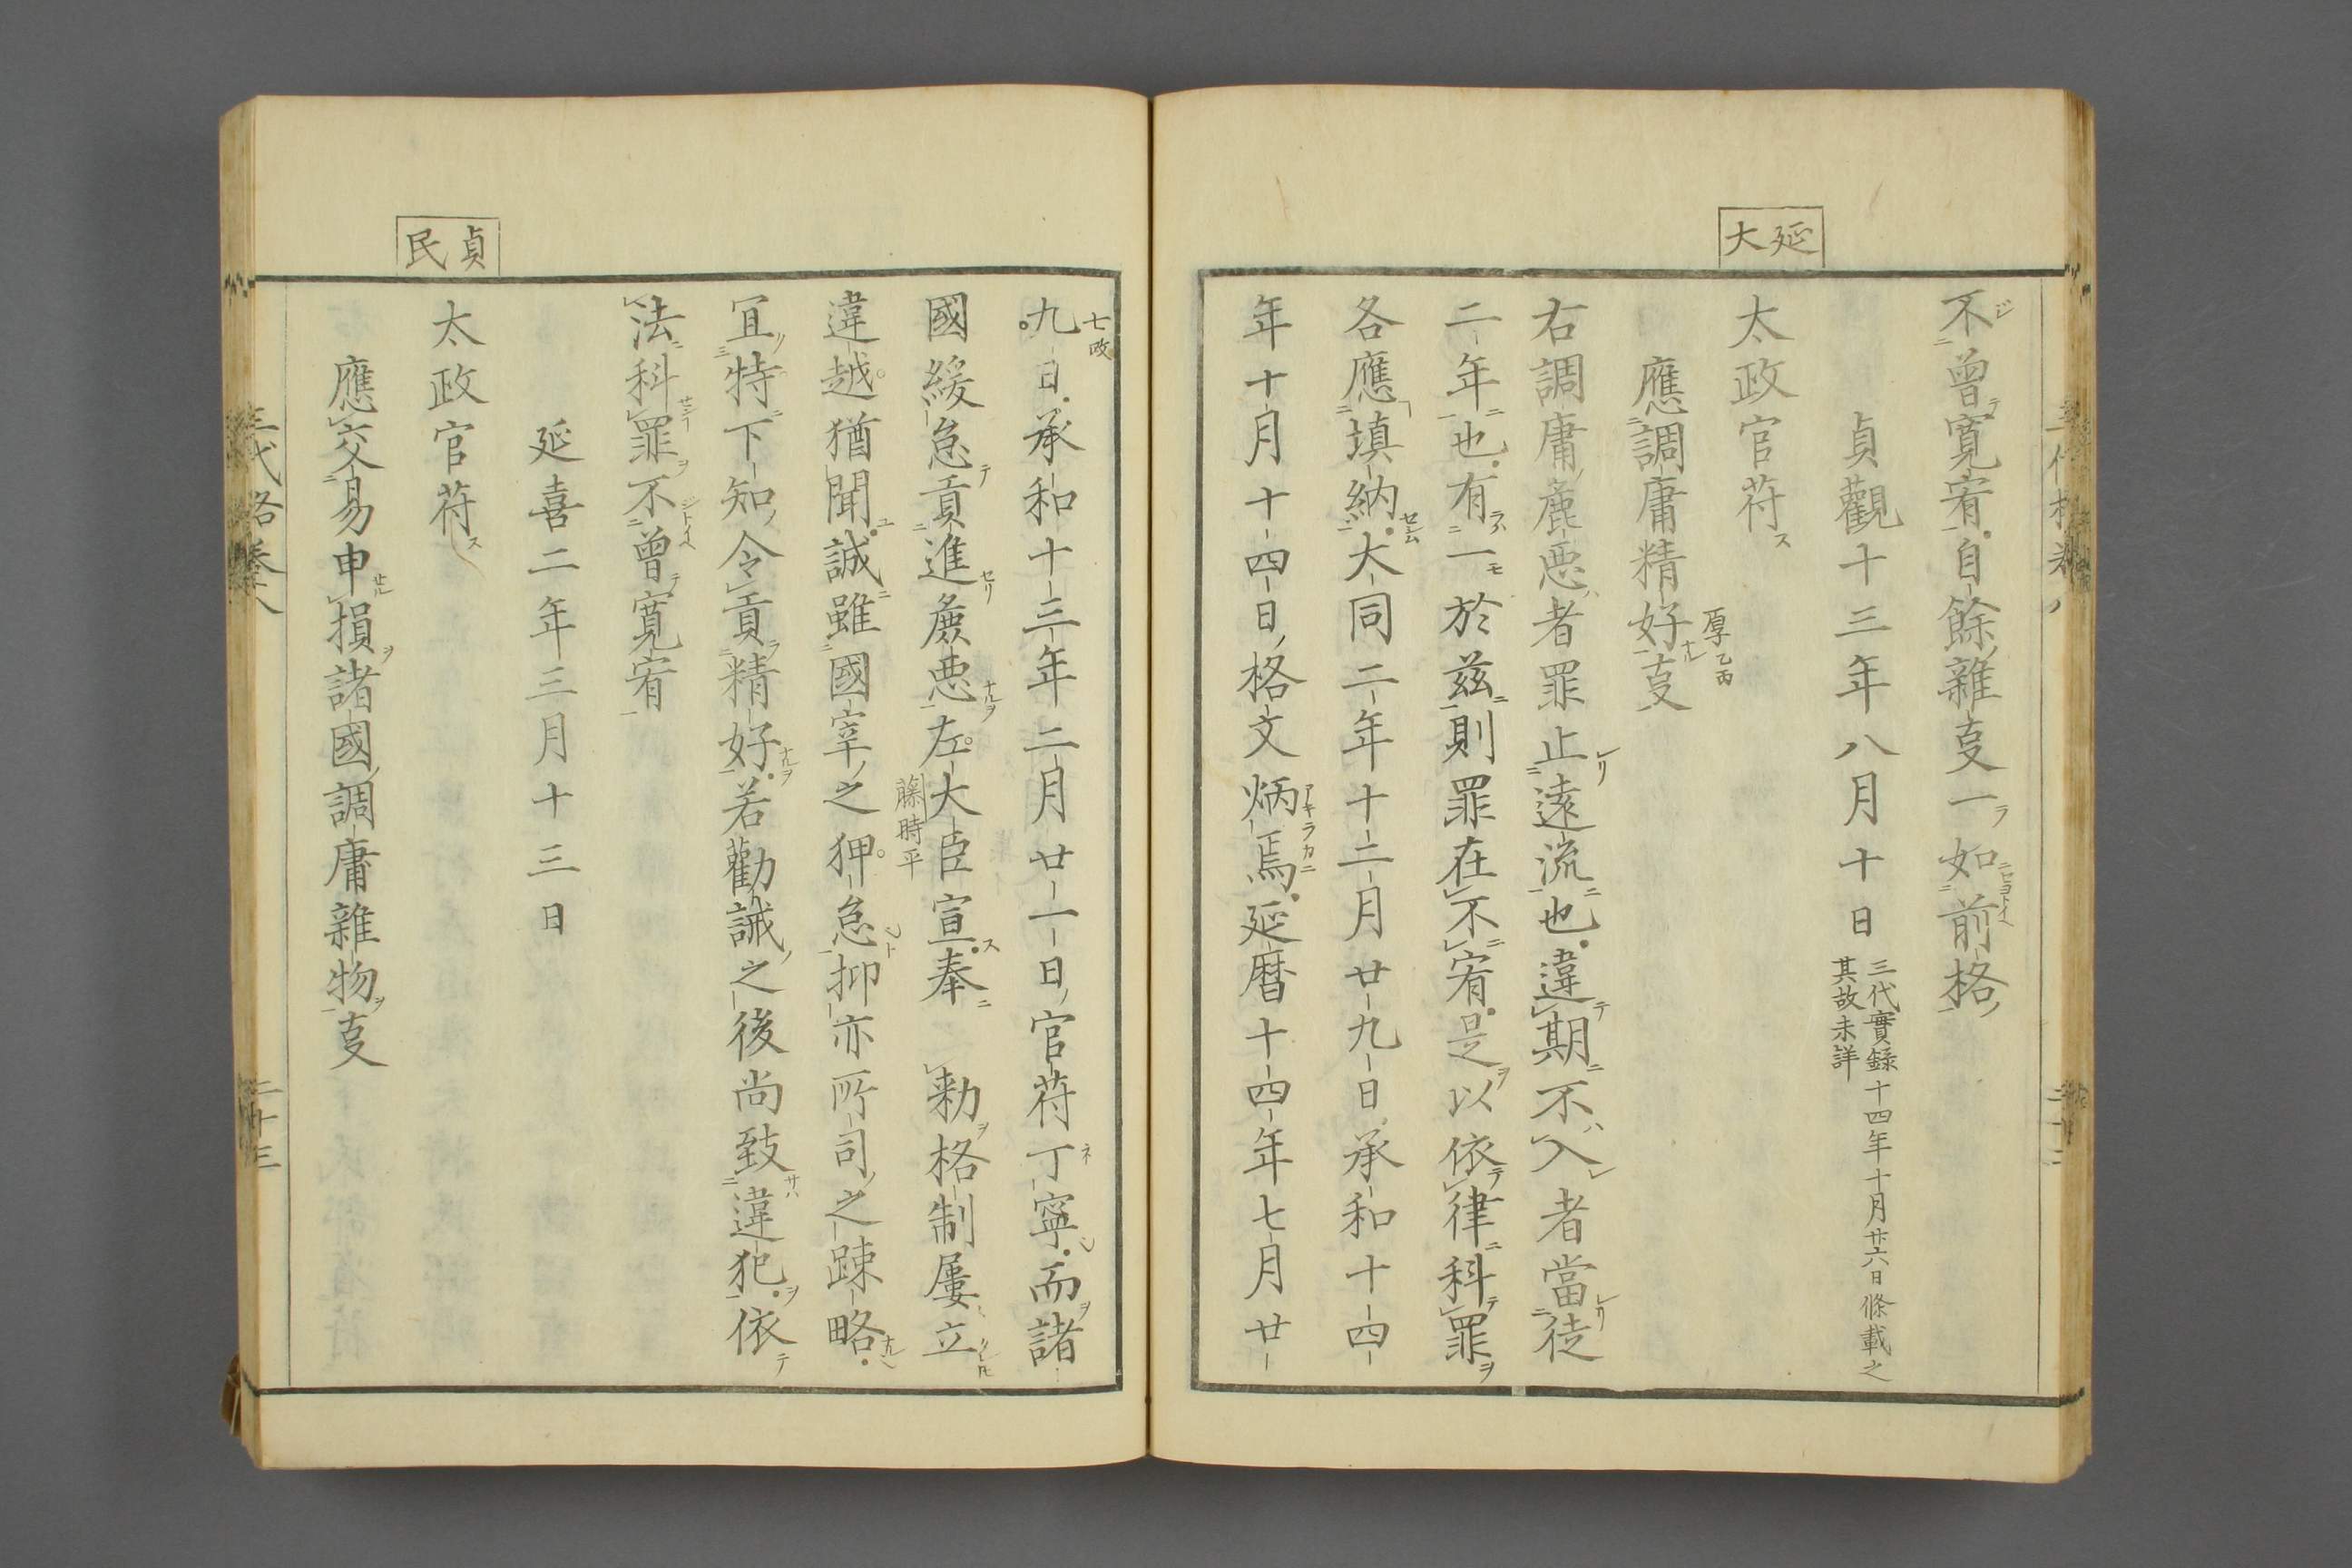 延大
不曾寛宥自餘雜叓一如前格
貞觀十三年八月十日
三代實録十四年十月廿六日條載之
其故未詳
太政官苻
應調庸精好叓
厚乙丙
右調庸麁悪者罪止遠流也違期不入者當徒
二年也有一於兹則罪在不宥是以依律科罪
各應填納大同二年十二月廿九日承和十四
年十月十四日格文炳焉延暦十四年七月廿
貞民
九日承和十三年二月廿一日官苻丁寧而諸
七改
國緩怠貢進麁悪左大臣宣奉　勅格制屢立
藤時平
違越猶聞誠雖國宰之狎怠抑亦所司之踈略
冝特下知令貢精好若勸誡之後尚致違犯依
法科罪不曾寛宥
延喜二年三月十三日
太政官苻
應交易申損諸國調庸雜物叓
三代格巻八
二十三